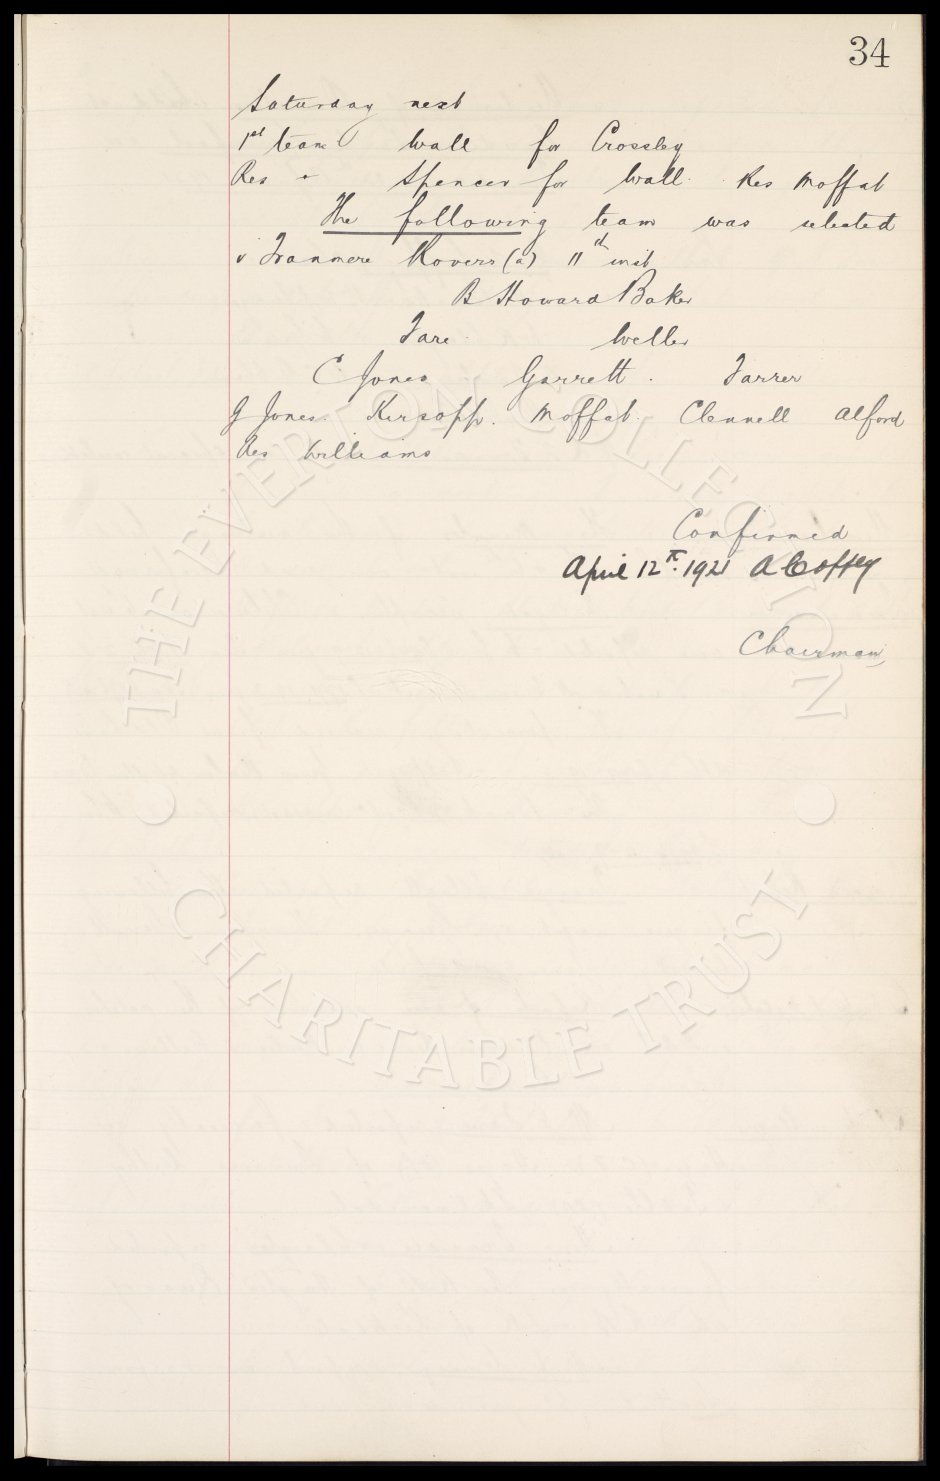 34
Saturday next
1st team Wall for Crossley
Res " Spencer for Wall. Res Moffat
The following team was selected
v Tranmere Rovers (a) 11th inst
B Howard Baker
Fare Weller
C Jones Garrett. Farrer
G Jones. Kirsopp. Moffat. Clennell Alford
Res Williams
Confirmed
April 12th. 1921 A Coffey
Chairman
THE EVERTON COLLECTION
CHARITABLE TRUST